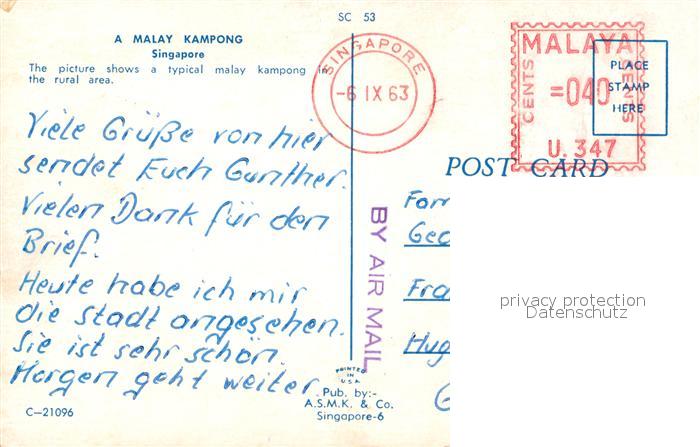 SC 53
A MALAY KAMPONG
Singapore
The picture shows a typical malay kampong in
the rural area.
Viele Grüße von hier
sendet Euch Gunther.
Vielen Dank für den
Brief.
Heute habe ich mir
die Stadt angesehen.
Sie ist sehr schön.
Morgen geht weiter.
C-21096
SINGAPORE
-6 IX 63
MALAYA
CENTS =040 CENTS
U. 347
PLACE
STAMP
HERE
POST CARD
BY AIR MAIL
Fam
Geo
Fra
Hug
privacy protection
Datenschutz
PRINTED
IN
U.S.A.
Pub. by:-
A.S.M.K. & Co.
Singapore-6